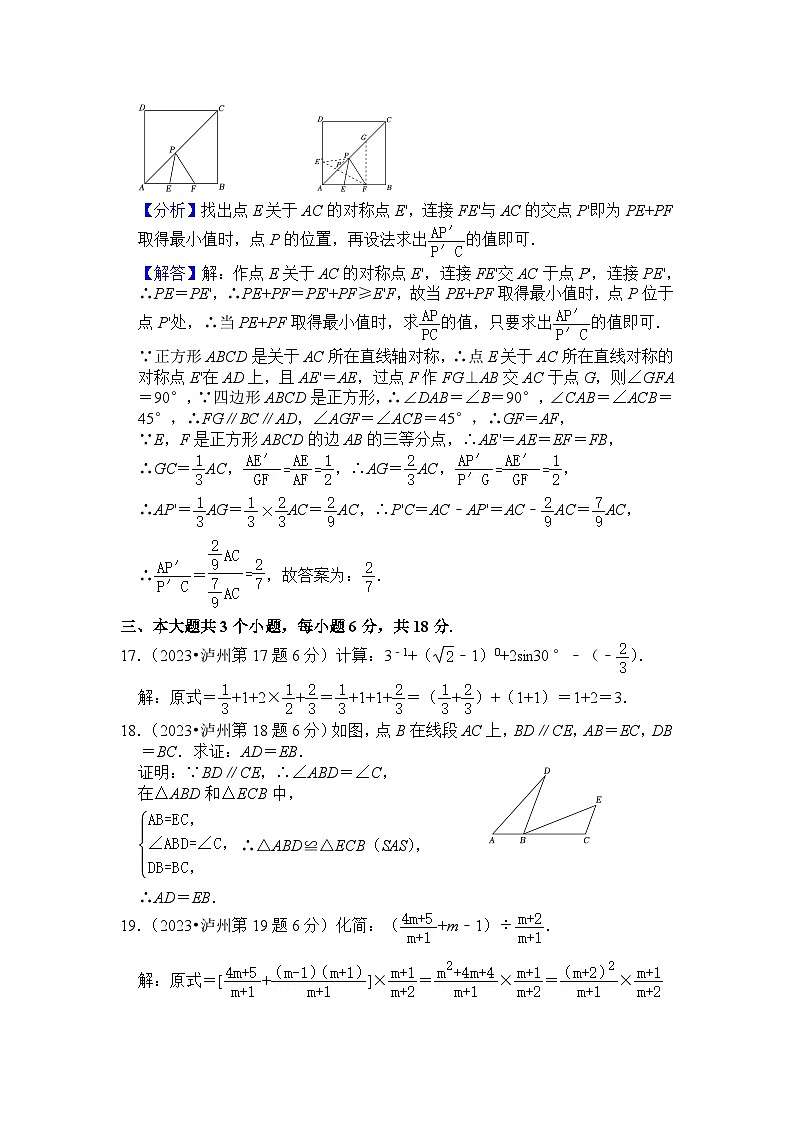 D C
P
A E F B
D C
G
E' P
P'
A E F B
【分析】找出点E关于AC的对称点E',连接FE'与AC的交点P'即为PE+PF
取得最小值时,点P的位置,再设法求出AP′/P′C的值即可.
【解答】解:作点E关于AC的对称点E',连接FE'交AC于点P,连接PE',
∴PE=PE',∴PE+PF=PE'+PF≥E'F,故当PE+PF取得最小值时,点P位于
点P'处,∴当PE+PF取得最小值时,求AP/PC的值,只要求出AP′/P′C的值即可.
∵正方形ABCD是关于AC所在直线轴对称,∴点E关于AC所在直线对称的
对称点E'在AD上,且AE'=AE,过点F作FG⊥AB交AC于点G,则∠GFA
=90°,∵四边形ABCD是正方形,∴∠DAB=∠B=90°,∠CAB=∠ACB=
45°,∴FG∥BC∥AD,∠AGF=∠ACB=45°,∴GF=AF,
∵E,F是正方形ABCD的边AB的三等分点,∴AE'=AE=EF=FB,
∴GC=1/3AC,AE′/GF=AE/AF=1/2,∴AG=2/3AC,AP′/P′G=AE′/GF=1/2,
∴AP'=1/3AG=1/3×2/3AC=2/9AC,∴P'C=AC﹣AP'=AC﹣2/9AC=7/9AC,
∴AP′/P′C=(2/9AC)/(7/9AC)=2/7,故答案为:2/7.
三、本大题共3个小题,每小题6分,共18分.
17.(2023•泸州第17题6分)计算:3⁻¹+(√2﹣1)⁰+2sin30°﹣(﹣2/3).
解:原式=1/3+1+2×1/2+2/3=1/3+1+1+2/3=(1/3+2/3)+(1+1)=1+2=3.
18.(2023•泸州第18题6分)如图,点B在线段AC上,BD∥CE,AB=EC,DB
=BC.求证:AD=EB.
证明:∵BD∥CE,∴∠ABD=∠C,
在△ABD和△ECB中,
{AB=EC,
∠ABD=∠C,∴△ABD≌△ECB(SAS),
DB=BC,
∴AD=EB.
D
E
A B C
19.(2023•泸州第19题6分)化简:((4m+5)/(m+1)+m﹣1)÷(m+2)/(m+1).
解:原式=[(4m+5)/(m+1)+(m-1)(m+1)/(m+1)]×(m+1)/(m+2)=(m²+4m+4)/(m+1)×(m+1)/(m+2)=(m+2)²/(m+1)×(m+1)/(m+2)